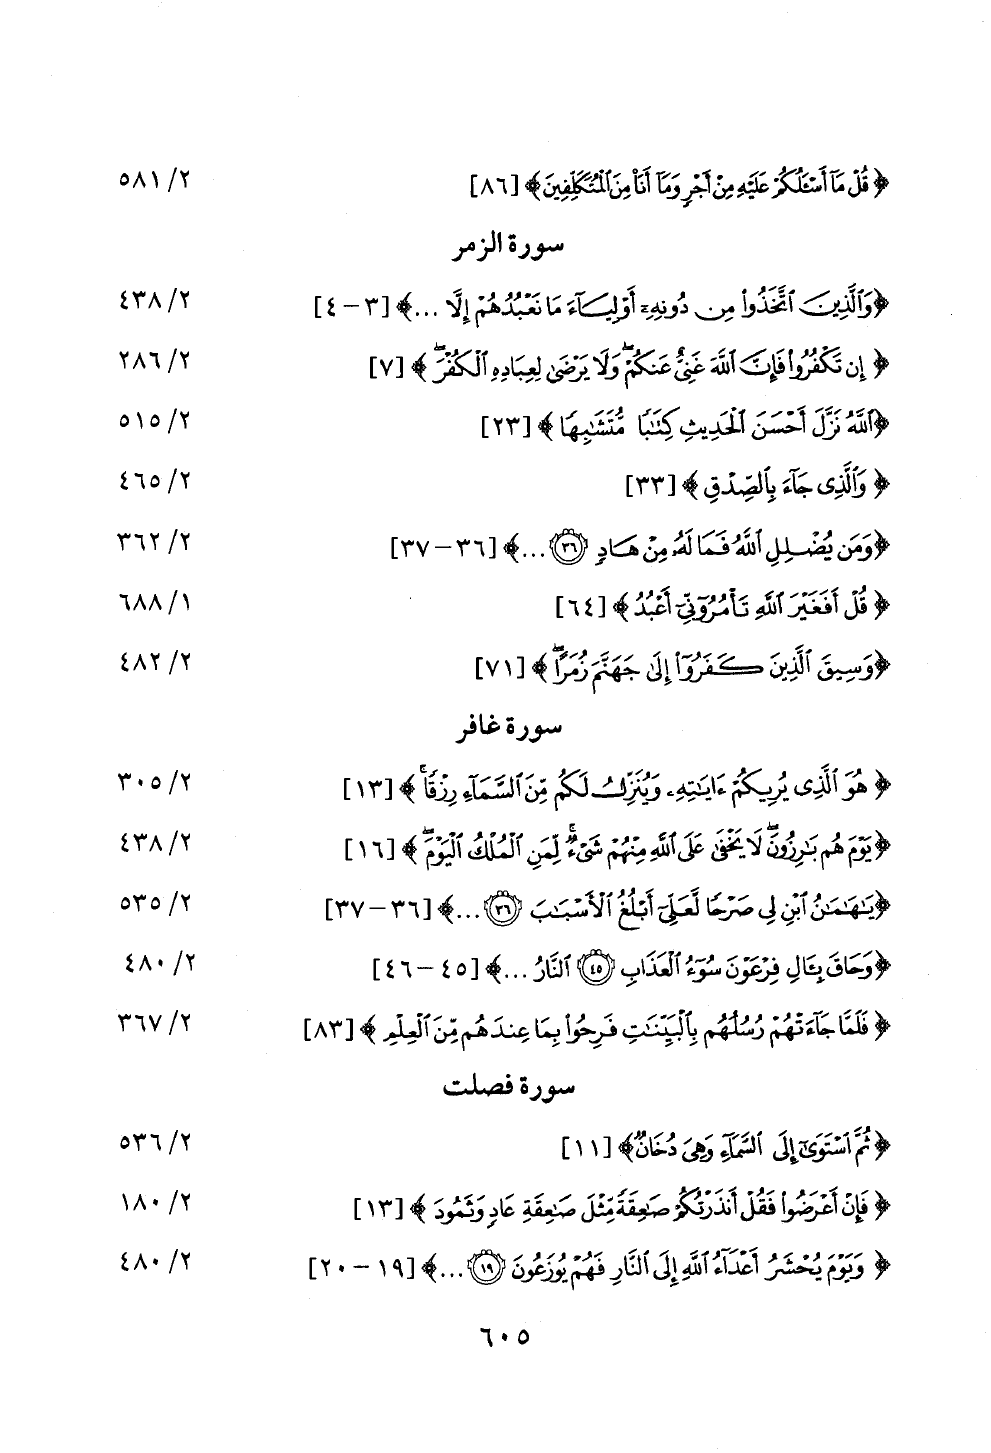 ﴿ قُلْ مَآ أَسْـَٔلُكُمْ عَلَيْهِ مِنْ أَجْرٍ وَمَآ أَنَا۠ مِنَ ٱلْمُتَكَلِّفِينَ ﴾ [٨٦] ٢/ ٥٨١
سورة الزمر
﴿ وَٱلَّذِينَ ٱتَّخَذُوا۟ مِن دُونِهِۦٓ أَوْلِيَآءَ مَا نَعْبُدُهُمْ إِلَّا ... ﴾ [٣ - ٤] ٢/ ٤٣٨
﴿ إِن تَكْفُرُوا۟ فَإِنَّ ٱللَّهَ غَنِىٌّ عَنكُمْ ۖ وَلَا يَرْضَىٰ لِعِبَادِهِ ٱلْكُفْرَ ۖ ﴾ [٧] ٢/ ٢٨٦
﴿ ٱللَّهُ نَزَّلَ أَحْسَنَ ٱلْحَدِيثِ كِتَٰبًا مُّتَشَٰبِهًا ﴾ [٢٣] ٢/ ٥١٥
﴿ وَٱلَّذِى جَآءَ بِٱلصِّدْقِ ﴾ [٣٣] ٢/ ٤٦٥
﴿ وَمَن يُضْلِلِ ٱللَّهُ فَمَا لَهُۥ مِنْ هَادٍ ٣٦ ... ﴾ [٣٦ - ٣٧] ٢/ ٣٦٢
﴿ قُلْ أَفَغَيْرَ ٱللَّهِ تَأْمُرُوٓنِّىٓ أَعْبُدُ ﴾ [٦٤] ١/ ٦٨٨
﴿ وَسِيقَ ٱلَّذِينَ كَفَرُوٓا۟ إِلَىٰ جَهَنَّمَ زُمَرًا ۖ ﴾ [٧١] ٢/ ٤٨٢
سورة غافر
﴿ هُوَ ٱلَّذِى يُرِيكُمْ ءَايَٰتِهِۦ وَيُنَزِّلُ لَكُم مِّنَ ٱلسَّمَآءِ رِزْقًا ۚ ﴾ [١٣] ٢/ ٣٠٥
﴿ يَوْمَ هُم بَٰرِزُونَ ۖ لَا يَخْفَىٰ عَلَى ٱللَّهِ مِنْهُمْ شَىْءٌ ۚ لِّمَنِ ٱلْمُلْكُ ٱلْيَوْمَ ۖ ﴾ [١٦] ٢/ ٤٣٨
﴿ يَٰهَٰمَٰنُ ٱبْنِ لِى صَرْحًا لَّعَلِّىٓ أَبْلُغُ ٱلْأَسْبَٰبَ ٣٦ ... ﴾ [٣٦ - ٣٧] ٢/ ٥٣٥
﴿ وَحَاقَ بِـَٔالِ فِرْعَوْنَ سُوٓءُ ٱلْعَذَابِ ٤٥ ٱلنَّارُ ... ﴾ [٤٥ - ٤٦] ٢/ ٤٨٠
﴿ فَلَمَّا جَآءَتْهُمْ رُسُلُهُم بِٱلْبَيِّنَٰتِ فَرِحُوا۟ بِمَا عِندَهُم مِّنَ ٱلْعِلْمِ ﴾ [٨٣] ٢/ ٣٦٧
سورة فصلت
﴿ ثُمَّ ٱسْتَوَىٰٓ إِلَى ٱلسَّمَآءِ وَهِىَ دُخَانٌ ﴾ [١١] ٢/ ٥٣٦
﴿ فَإِنْ أَعْرَضُوا۟ فَقُلْ أَنذَرْتُكُمْ صَٰعِقَةً مِّثْلَ صَٰعِقَةِ عَادٍ وَثَمُودَ ﴾ [١٣] ٢/ ١٨٠
﴿ وَيَوْمَ يُحْشَرُ أَعْدَآءُ ٱللَّهِ إِلَى ٱلنَّارِ فَهُمْ يُوزَعُونَ ١٩ ... ﴾ [١٩ - ٢٠] ٢/ ٤٨٠
٦٠٥